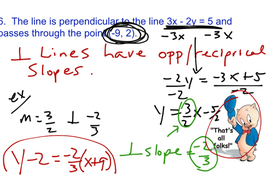 6. The line is perpendicular to the line 3x - 2y = 5 and
passes through the point (-9, 2).
-3x -3x
⊥ Lines have opp/reciprical
slopes.
-2y = -3x + 5
-2 -2
ex/
m = 3/2 ⊥ -2/3
y = 3/2 x - 5/2
⊥ slope = -2/3
y - 2 = -2/3 (x + 9)
"That's
all
folks!"